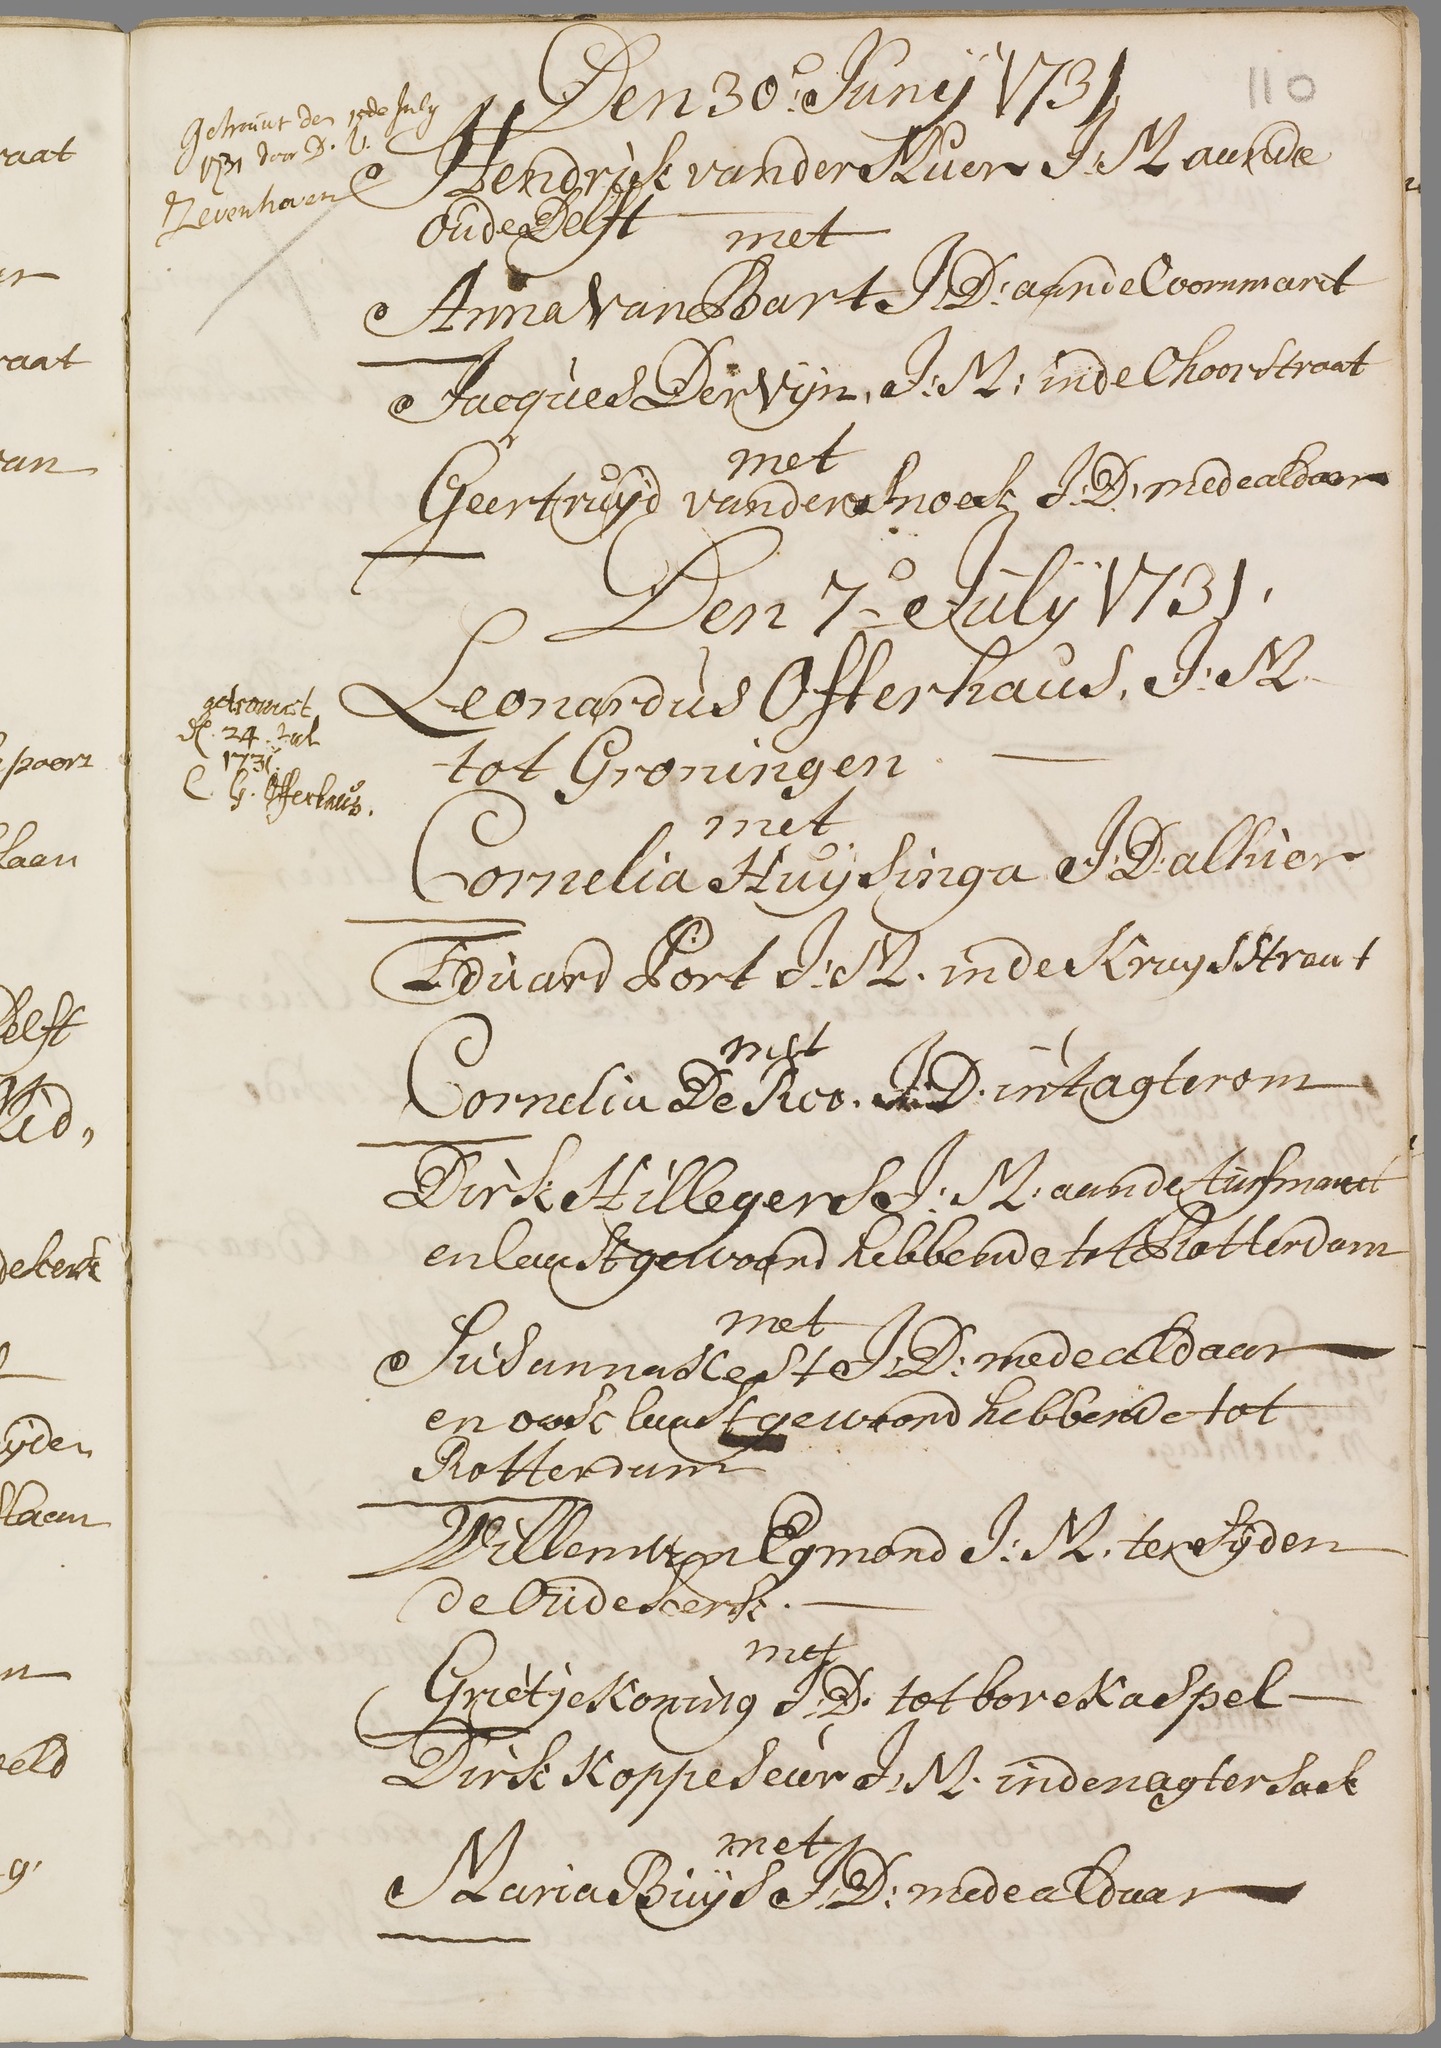 110
Den 30.e Junÿ 1731
getrouwt den 15de July
1731 door D. V.
Zevenhoven
Hendrik vander Muer J: M aande
oude Delft
met
Anna Van Bart J: D: aande Coornmarct
Jacques Dervijn, J: M: inde Choorstraat
met
Geertruijd vander Snoeck J: D: mede aldaar
Den 7.e Julÿ 1731.
Leonardus Offerhaus. J: M.
tot Groningen
getrouwt
d. 24. Jul
1731.
C. G. Offerhaus.
met
Cornelia Huysinga J: D: alhier
Eduard Port J: M. inde Kruysstraat
met
Cornelia De Reo. J: D. int agterom
Dirk Hillegers J: M: aande turfmarct
en laast gewoond hebbende tot Rotterdam
met
Susanna Kest J: D: mede aldaar
en ook laast gewoond hebbende tot
Rotterdam
Willem van Egmond J: M. ter Sijden
de Oude kerk.
met
Grietje Koning J: D. tot borekaspel
Dirk Koppeseur J: M. inden agtersack
met
Maria Buÿs J: D: mede aldaar